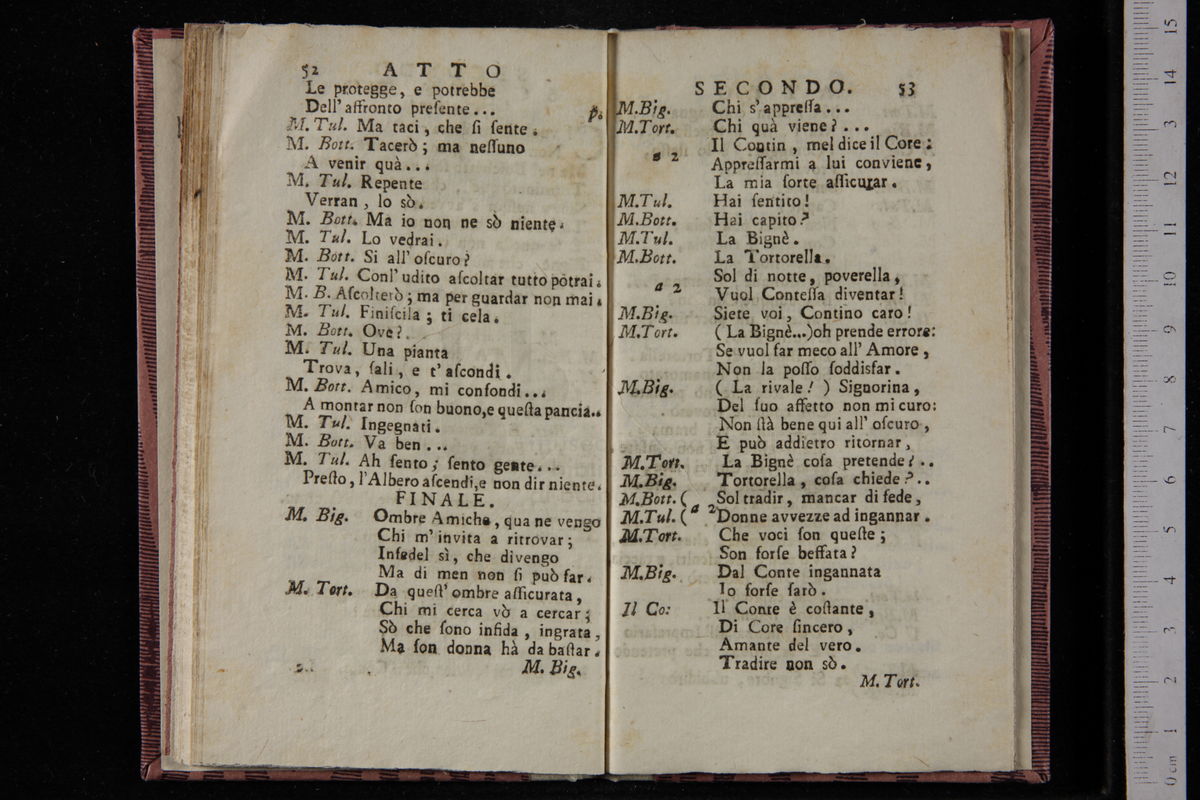 52 ATTO
Le protegge, e potrebbe
Dell' affronto preſente...
M. Tul. Ma taci, che ſi ſente.
M. Bott. Tacerò; ma neſſuno
A venir quà...
M. Tul. Repente
Verran, lo sò.
M. Bott. Ma io non ne sò niente.
M. Tul. Lo vedrai.
M. Bott. Si all' oſcuro?
M. Tul. Conl' udito aſcoltar tutto potrai.
M. B. Aſcolterò; ma per guardar non mai.
M. Tul. Finiſcila; ti cela.
M. Bott. Ove?
M. Tul. Una pianta
Trova, ſali, e t' aſcondi.
M. Bott. Amico, mi confondi...
A montar non ſon buono, e queſta pancia..
M. Tul. Ingegnati.
M. Bott. Va ben...
M. Tul. Ah ſento; ſento gente...
Preſto, l'Albero aſcendi, e non dir niente.
FINALE.
M. Big. Ombre Amiche, qua ne vengo
Chi m' invita a ritrovar;
Infedel sì, che divengo
Ma di men non ſi può far.
M. Tort. Da queſt' ombre aſſicurata,
Chi mi cerca vò a cercar;
Sò che ſono infida, ingrata,
Ma ſon donna hà da baſtar.
M. Big.
SECONDO. 53
M. Big. Chi s' appreſſa...
M. Tort. Chi quà viene?...
Il Contin, mel dice il Core:
a 2 Appreſſarmi a lui conviene,
La mia ſorte aſſicurar.
M. Tul. Hai ſentito!
M. Bott. Hai capito?
M. Tul. La Bignè.
M. Bott. La Tortorella.
Sol di notte, poverella,
a 2 Vuol Conteſſa diventar!
M. Big. Siete voi, Contino caro!
M. Tort. (La Bignè...)oh prende errore:
Se vuol far meco all' Amore,
Non la poſſo ſoddisfar.
M. Big. (La rivale!) Signorina,
Del ſuo affetto non mi curo:
Non ſtà bene qui all' oſcuro,
E può addietro ritornar,
M. Tort. La Bignè coſa pretende?..
M. Big. Tortorella, coſa chiede?..
M. Bott. ( Sol tradir, mancar di fede,
M. Tul. ( a 2 Donne avvezze ad ingannar.
M. Tort. Che voci ſon queſte;
Son forſe beffata?
M. Big. Dal Conte ingannata
Io forſe ſarò.
Il Co: Il Conte è coſtante,
Di Core ſincero,
Amante del vero.
Tradire non sò.
M. Tort.